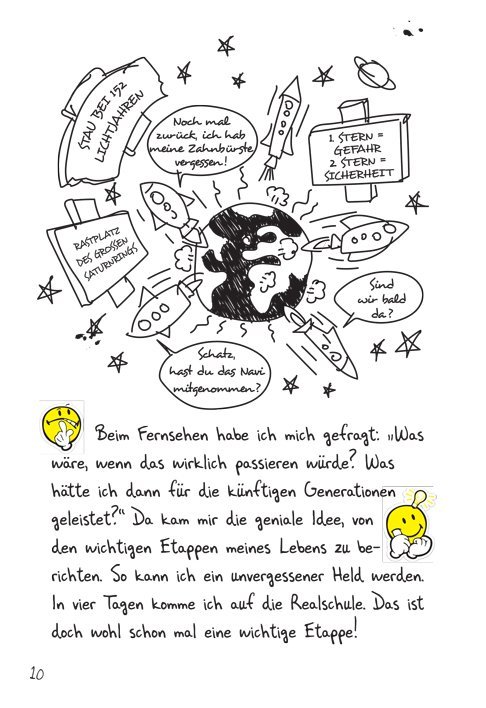 STAU BEI 152
LICHTJAHREN
Noch mal
zurück, ich hab
meine Zahnbürste
vergessen!
1. STERN =
GEFAHR
2 STERN =
SICHERHEIT
RASTPLATZ
DES GROSSEN
SATURNRINGS
Sind
wir bald
da?
Schatz,
hast du das Navi
mitgenommen?
Beim Fernsehen habe ich mich gefragt: „Was
wäre, wenn das wirklich passieren würde? Was
hätte ich dann für die künftigen Generationen
geleistet?“ Da kam mir die geniale Idee, von
den wichtigen Etappen meines Lebens zu be-
richten. So kann ich ein unvergessener Held werden.
In vier Tagen komme ich auf die Realschule. Das ist
doch wohl schon mal eine wichtige Etappe!
10